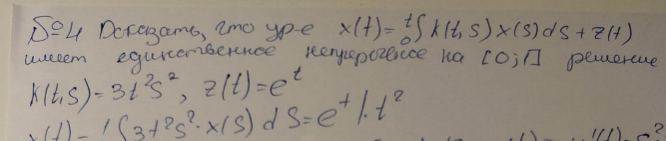 №4 Доказать, что ур-е x(t) = ₀ᵗ∫ K(t,s) x(s) ds + z(t)
имеет единственное непрерывное на [0;1] решение
K(t,s) = 3t²s², z(t) = eᵗ
x(t) - ∫3t²s²·x(s) ds = eᵗ /·t²